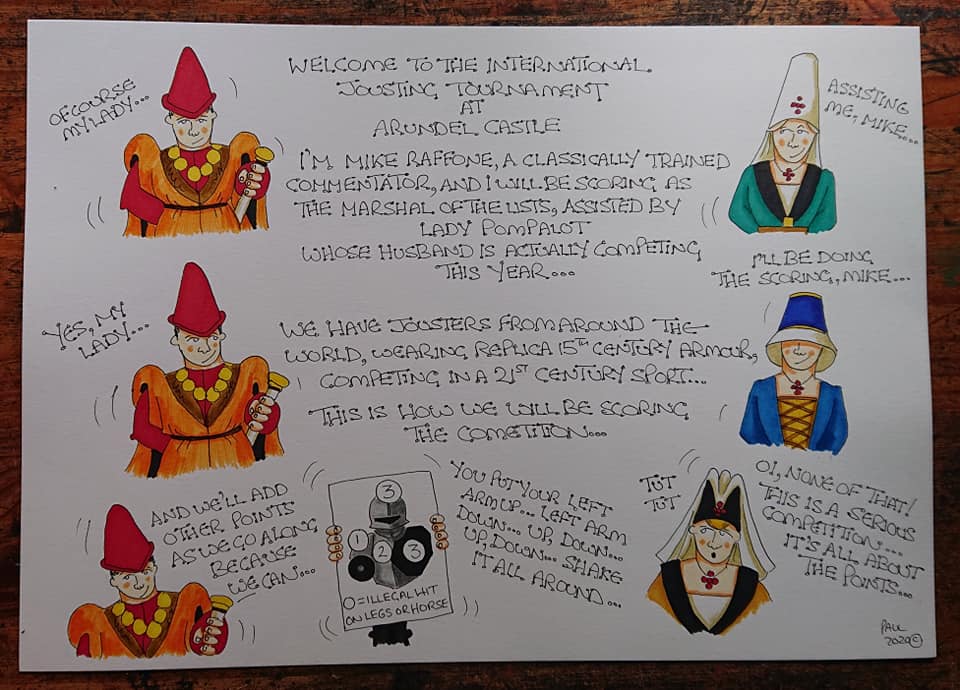 OF COURSE
MY LADY...
WELCOME TO THE INTERNATIONAL
JOUSTING TOURNAMENT
AT
ARUNDEL CASTLE
ASSISTING
ME, MIKE...
I'M MIKE RAFFONE, A CLASSICALLY TRAINED
COMMENTATOR, AND I WILL BE SCORING AS
THE MARSHAL OF THE LISTS, ASSISTED BY
LADY POMPALOT
WHOSE HUSBAND IS ACTUALLY COMPETING
THIS YEAR...
I'LL BE DOING
THE SCORING, MIKE...
YES, MY
LADY...
WE HAVE JOUSTERS FROM AROUND THE
WORLD, WEARING REPLICA 15TH CENTURY ARMOUR,
COMPETING IN A 21ST CENTURY SPORT...
THIS IS HOW WE WILL BE SCORING
THE COMETITION...
AND WE'LL ADD
OTHER POINTS
AS WE GO ALONG
BECAUSE
WE CAN...
3
1 2 3
0=ILLEGAL HIT
ON LEGS OR HORSE
YOU PUT YOUR LEFT
ARM UP... LEFT ARM
DOWN... UP, DOWN...
UP, DOWN... SHAKE
IT ALL AROUND...
TUT
TUT
OI, NONE OF THAT!
THIS IS A SERIOUS
COMPETITION...
IT'S ALL ABOUT
THE POINTS...
PAUL
2020©